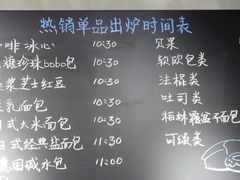 热销单品出炉时间表
咖啡冰心 10:30
糖珍珠bobo包 10:30
浆芝士红豆 10:30
乳面包 10:30
式大水面包 10:30
式经典盐面包 10:30
国碱水包 11:00
贝果
软欧包类
法棍类
吐司类
柏林露盐子面包
可颂类